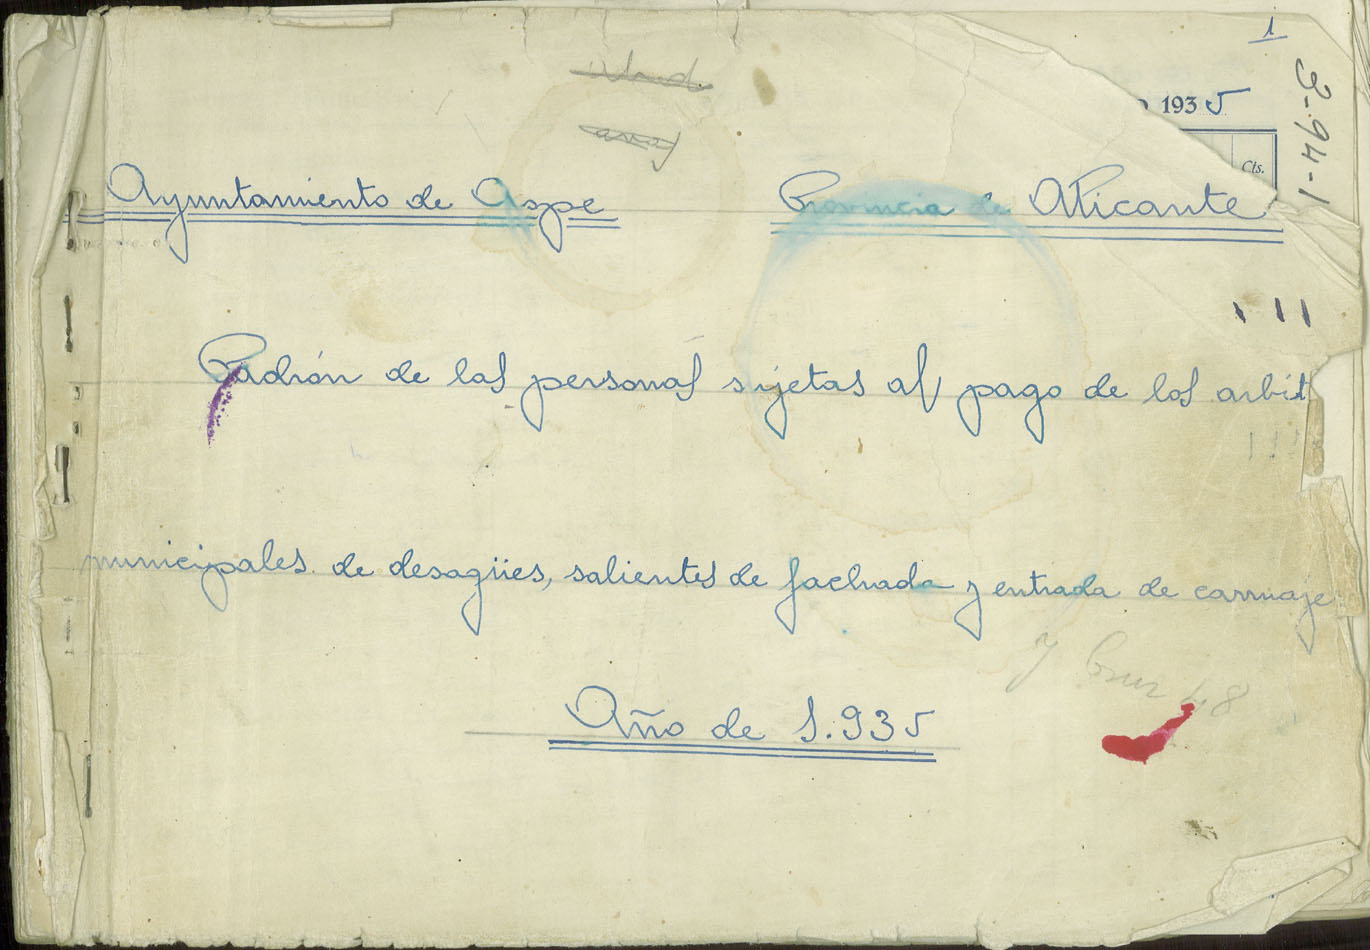 1
3-94-1
1935
Cts.
Ayuntamiento de Aspe Provincia de Alicante
Padrón de las personas sujetas al pago de los arbit
municipales de desagües, salientes de fachada y entrada de carruaje
Año de 1.935